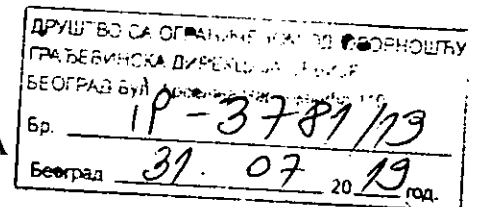 ДРУШТВО СА ОГРАНИЧЕНОМ ОДГОВОРНОШЋУ
ГРАЂЕВИНСКА ДИРЕКЦИЈА СРБИЈЕ
БЕОГРАД Бул.
Бр. IP-3781/19
Београд 31. 07 2019 год.